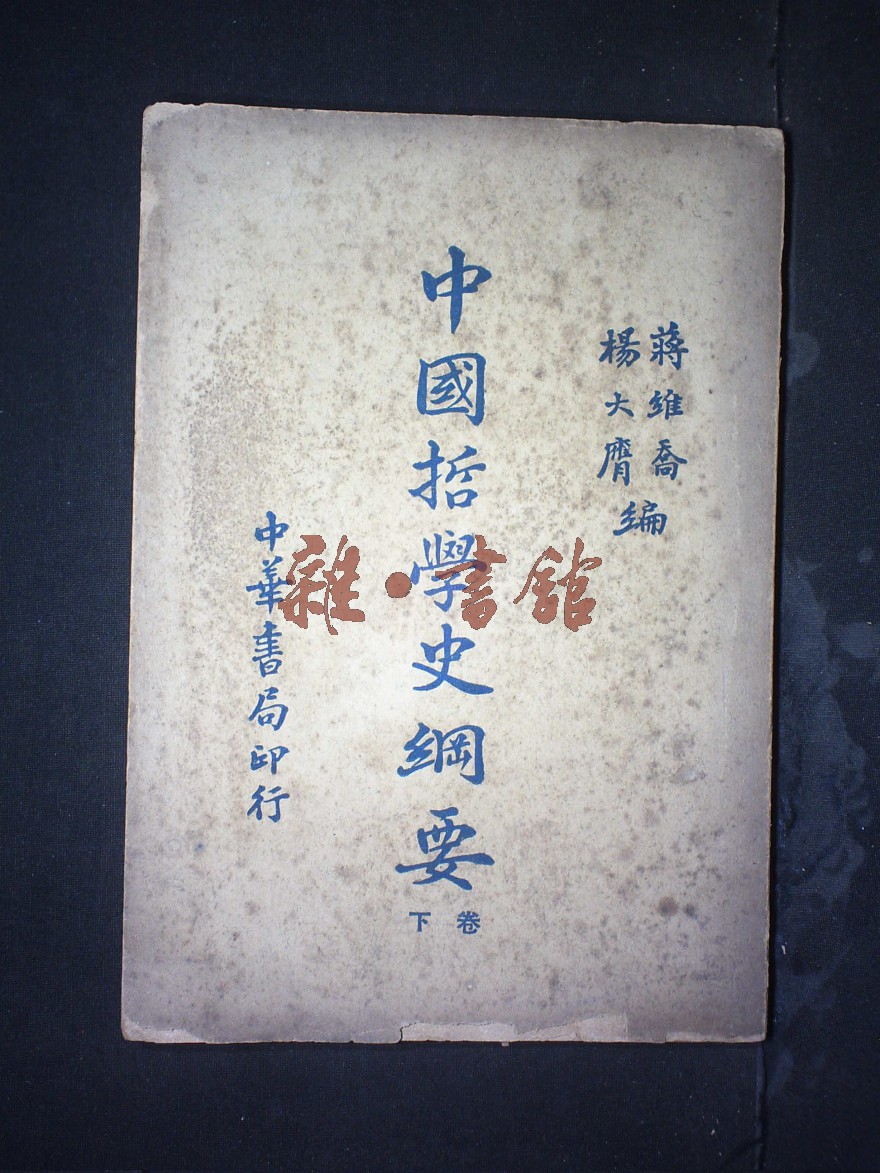 蔣維喬
楊大膺
編
中國哲學史綱要
卷下
中華書局印行
雜·書館